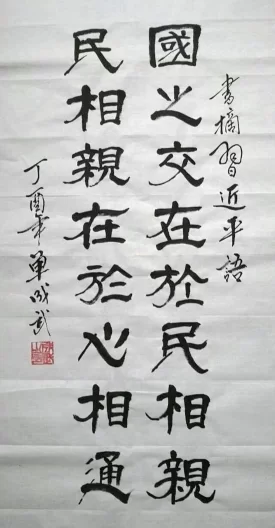 書摘習近平語
國之交在於民相親
民相親在於心相通
丁酉年單成武